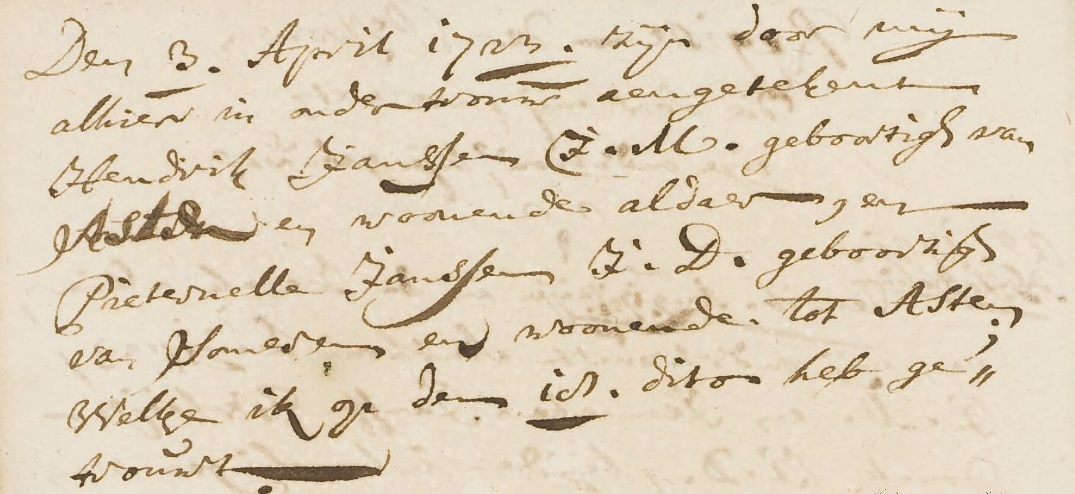 Den 3. April 1723. zijn door mij
alhier in ondertrouw aengetekent
Hendrik Janssen J. M. geboortigh van
Asten en woonende aldaer, en
Pieternella Janssen J. D. geboortigh
van Someren en woonende tot Asten,
Welke ik op den 18. dito heb ge„
trouwt